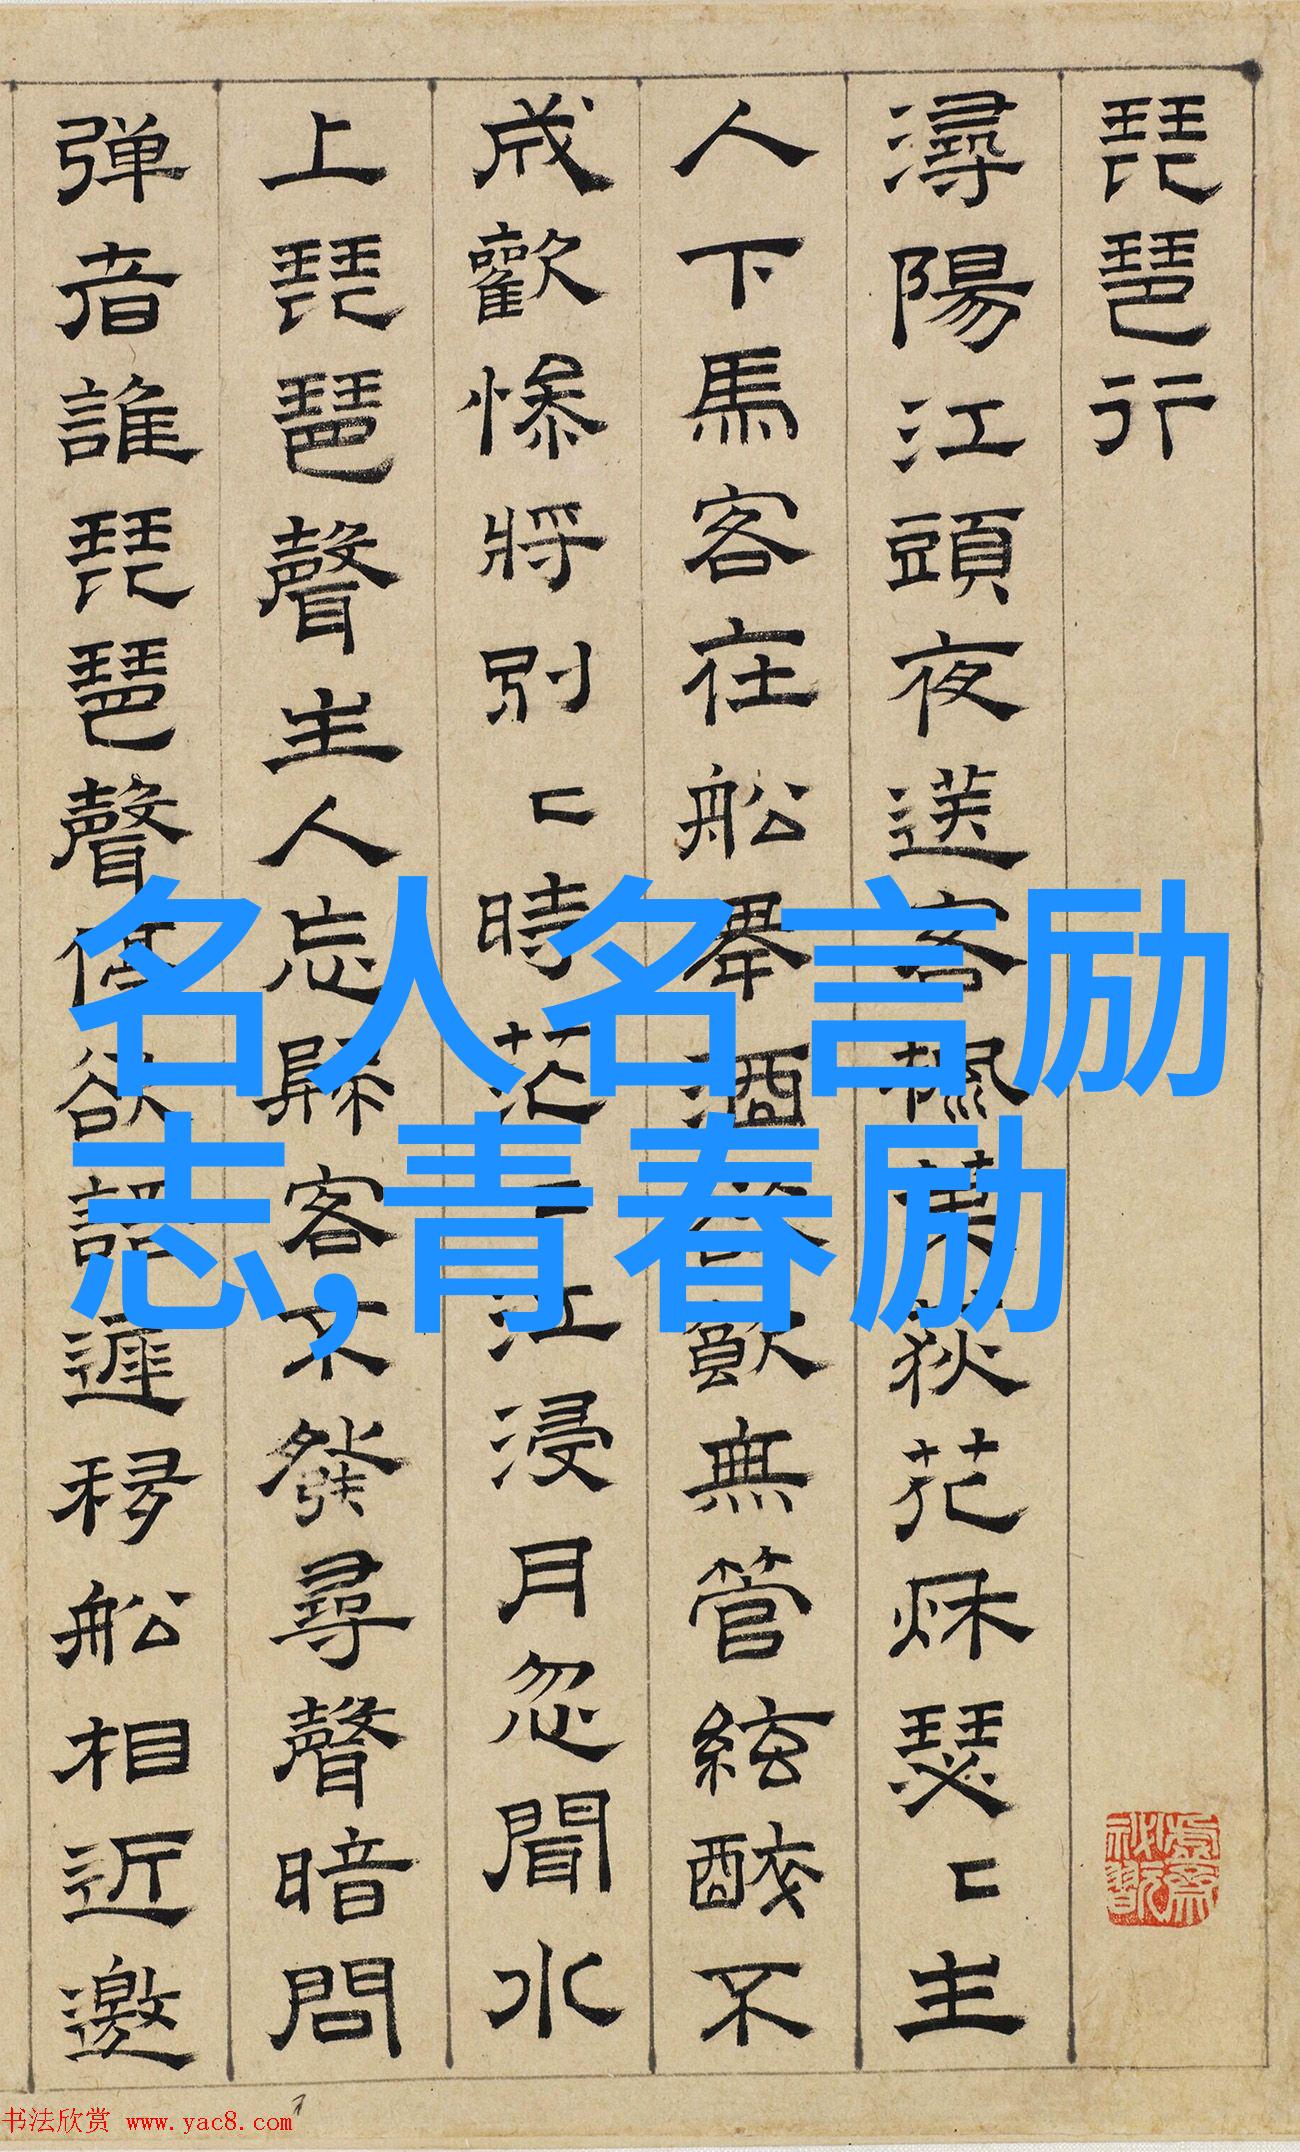 琵琶行
潯陽江頭夜送客楓葉荻花秌瑟〻主
人下馬客在船舉酒欲飲無管絃醉不
成歡慘將別〻時茫〻江浸月忽聞水
上琵琶聲主人忘歸客不發尋聲暗問
弹者誰琵琶聲停欲語遲移船相近邀
名人名言励
志,青春励
书法欣赏 www.yac8.com